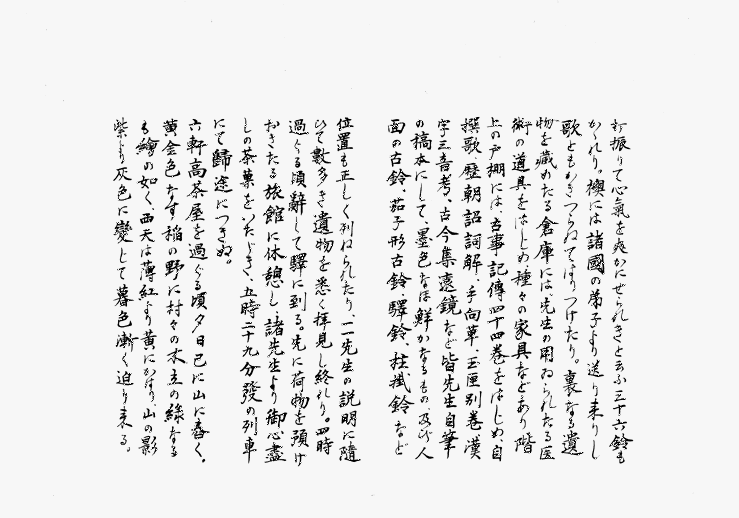 打振りて心氣を爽かにせられきと云ふ三十六鈴も
かくれり。襖には諸國の弟子より送り来りし
歌ともかきつらねてはりつけたり。裏なる遺
物を藏めたる倉庫には、先生の用ゐられたる医
術の道具をはじめ種々の家具などあり階
上の戸棚には古事記傳四十四巻をはじめ、自
撰歌、歴朝詔詞解、手向草、玉匣別巻、漢
字三音考、古今集遠鏡など皆先生自筆
の稿本にして、墨色なほ鮮かなるもの及び人
面の古鈴、茄子形古鈴、驛鈴、柱掛鈴など
位置も正しく列ねられたり、二先生の説明に隨
ひて數多き遺物を悉く拝見し終れり。四時
過ぐる頃辭して驛に到る。先に荷物を預け
おきたる旅館に休憩し、諸先生より御心盡
しの茶菓をいたゞき、五時二十九分發の列車
にて歸途につきぬ。
六軒高茶屋を過ぐる頃夕日已に山に舂く。
黄金色なす稲の野に村々の木立の緑なる
も繪の如く、西天は薄紅より黄にかはり、山の影
紫より灰色に變じて暮色漸く迫り来る。